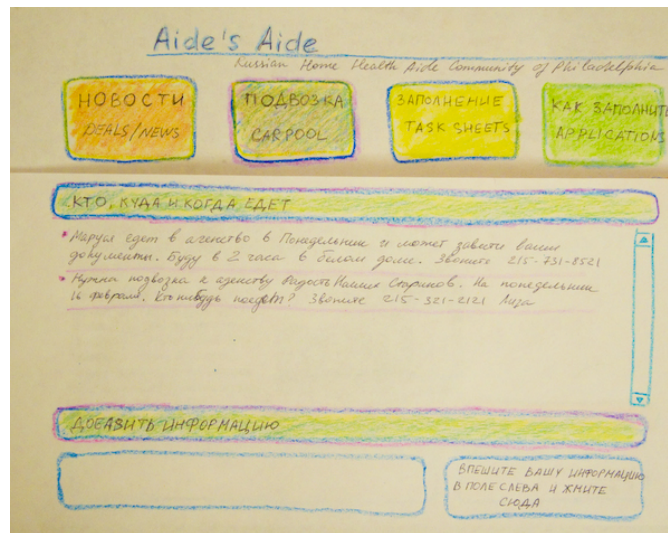 Aide's Aide
Russian Home Health Aide Community of Philadelphia
НОВОСТИ
DEALS/NEWS
ПОДВОЗКА
CARPOOL
ЗАПОЛНЕНИЕ
TASK SHEETS
КАК ЗАПОЛНИТ
APPLICATIONS
КТО, КУДА И КОГДА ЕДЕТ
Маруся едет в агенство в Понедельник и может завести ваши
документы. Буду в 2 часа в белом доме. Звоните 215-731-8521
Нужна подвозка к агенству Радость Наших Стариков. На понедельник
16 февраля. Кто нибудь поедет? Звоните 215-321-2121 Лиза
ДОБАВИТЬ ИНФОРМАЦИЮ
ВПЕШИТЕ ВАШУ ИНФОРМАЦИЮ
В ПОЛЕ СЛЕВА И ЖМИТЕ
СЮДА